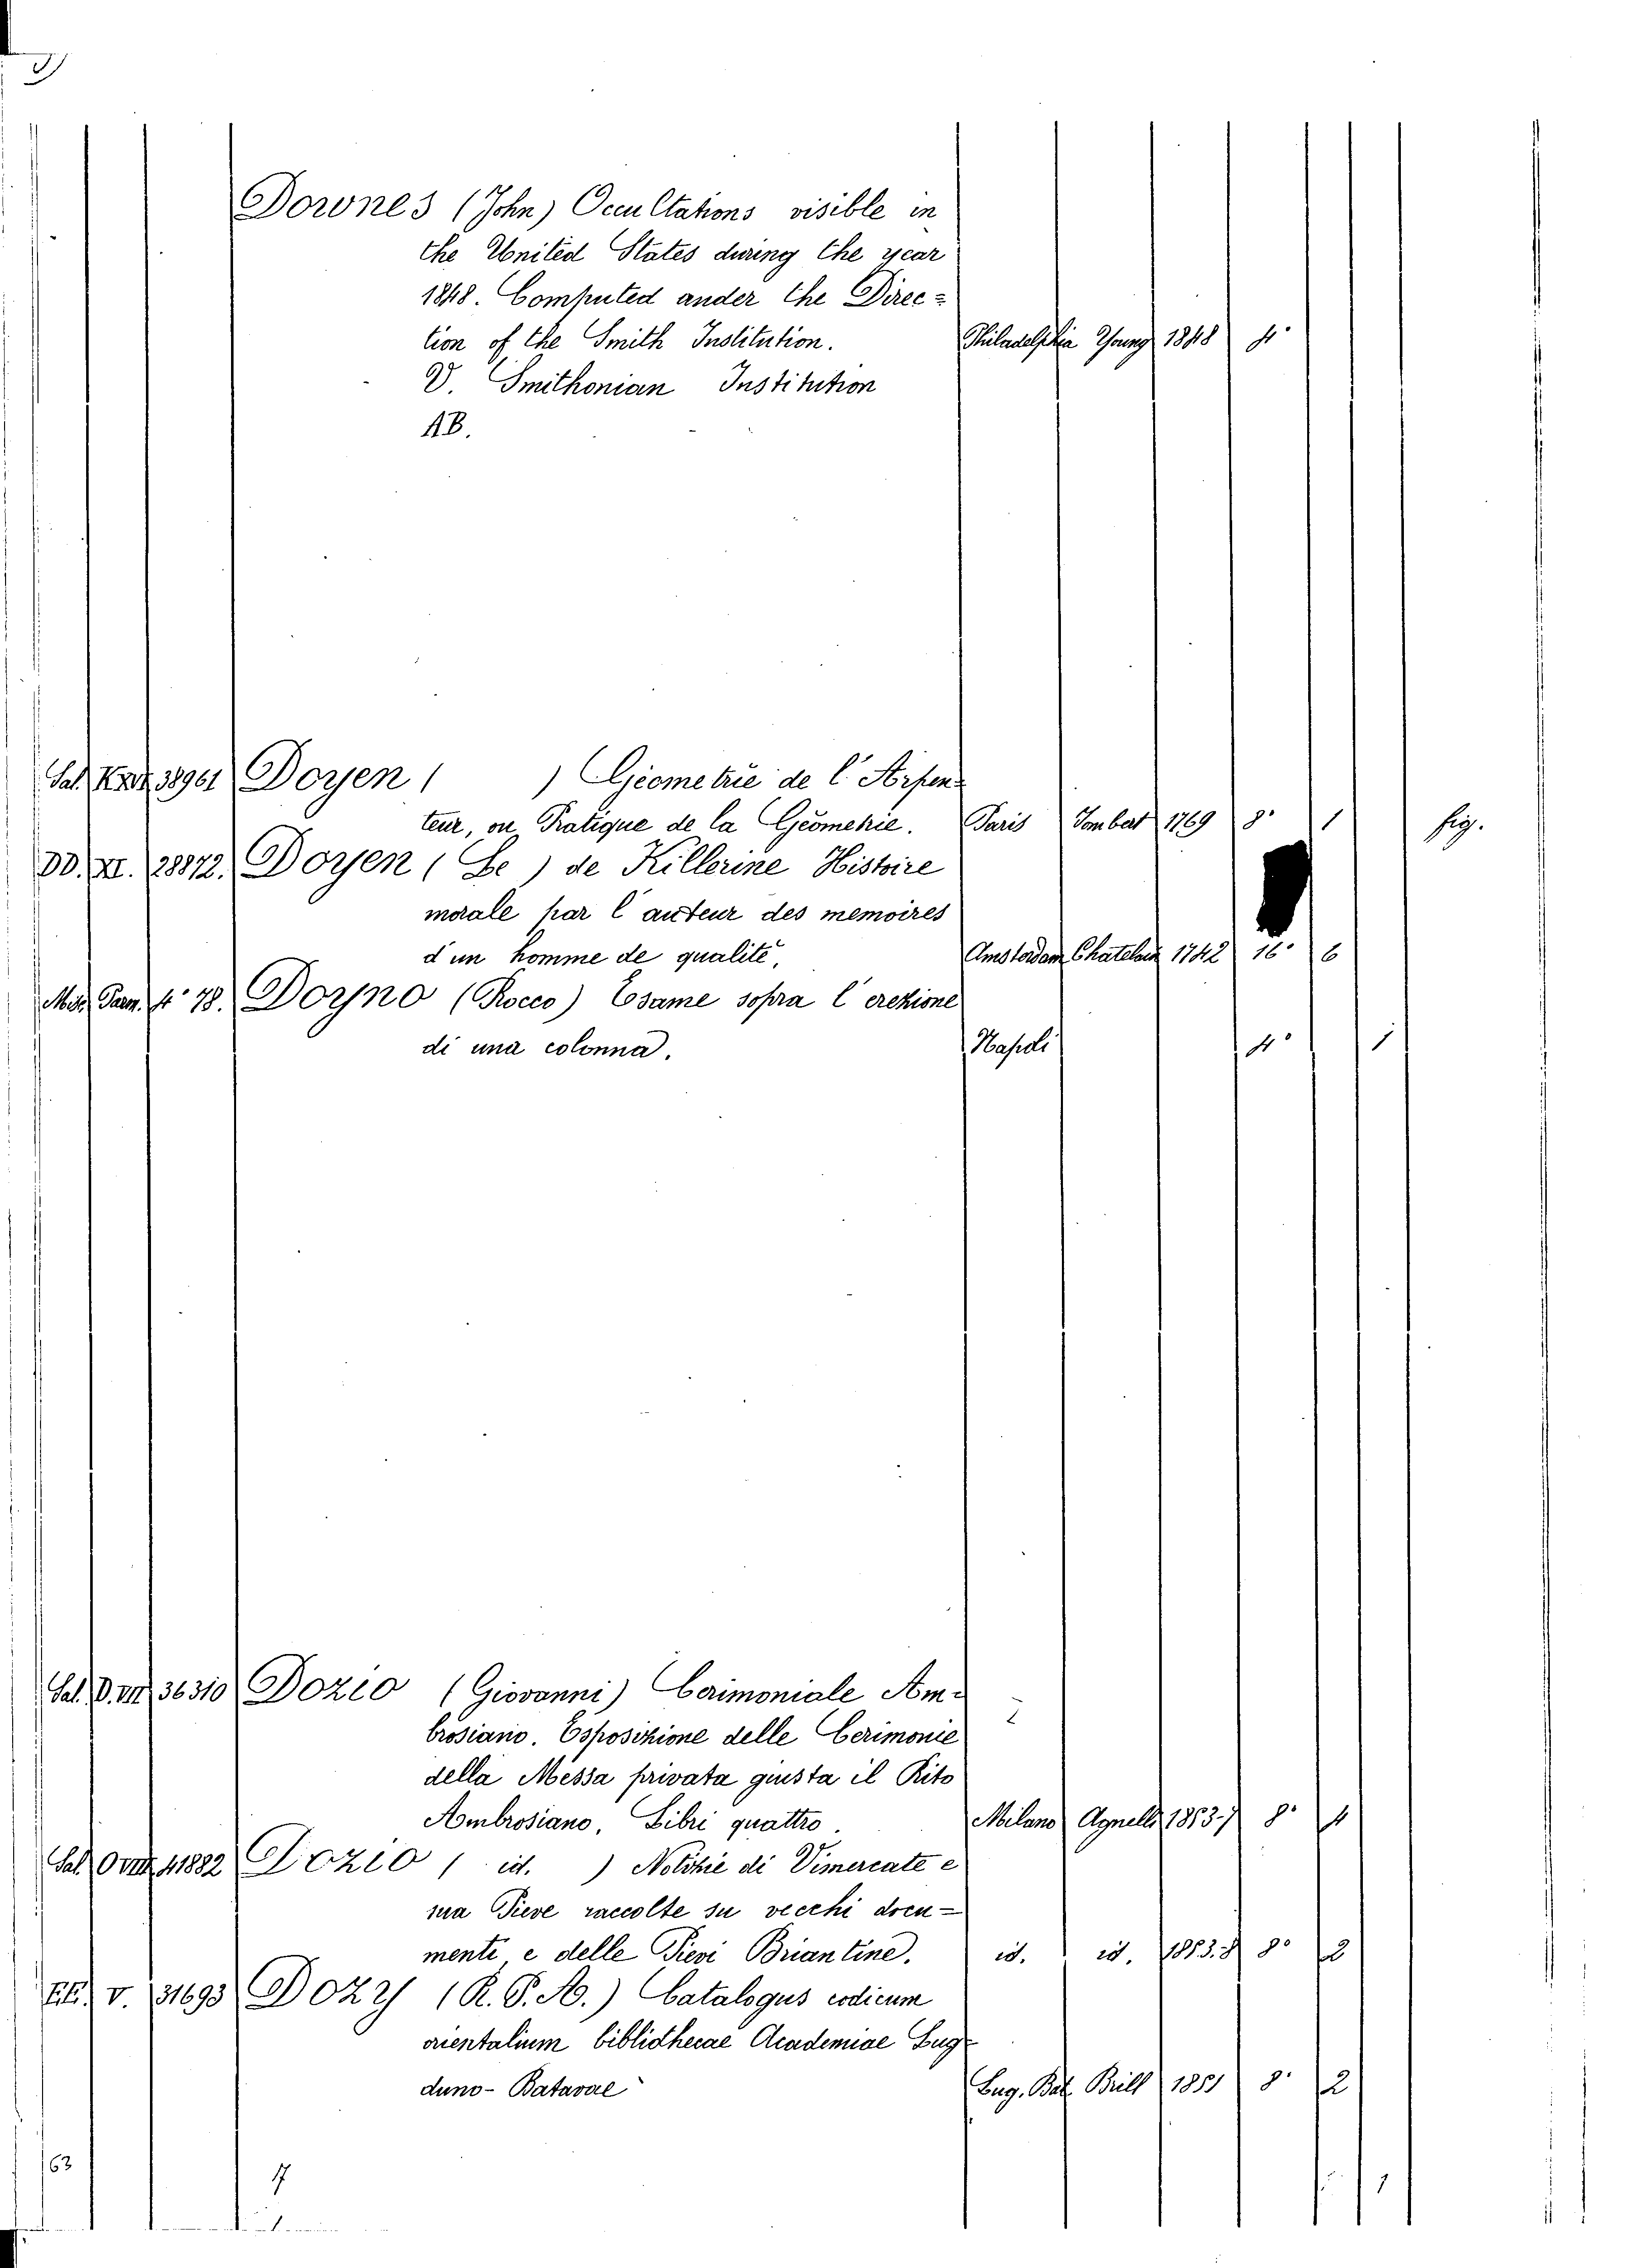 Downes (John) Occultations visible in
the United States during the year
1848. Computed ander the Direc=
tion of the Smith Institution. Philadelphia Young 1848 4°
V. Smithonian Institution
AB.
Sal. 38961 Doyen ( ) Géometrie de l'Arpen=
teur, ou Pratique de la Géometrie. Paris Jombert 1769 8° 1 fig.
DD. XI. 28872. Doyen (Le) de Killerine Histoire
morale par l'auteur des memoires
d'un homme de qualité, Amsterdam Chatelain 1742 16° 6
Misc. Parm. 4° 78. Doyno (Rocco) Esame sopra l'erezione
di una colonna. Napoli 4° 1
Sal. D. VII 36310 Dozio (Giovanni) Cerimoniale Am=
brosiano. Esposizione delle Cerimonie
della Messa privata giusta il Rito
Ambrosiano, Libri quattro. Milano Agnelli 1853-7 8° 4
Sal. O VIII 41882 Dozio ( id. ) Notizie di Vimercate e
sua Pieve raccolte su vecchi docu=
menti e delle Pievi Briantine. id. id. 1853.8 8° 2
V. 31693 Dozy (R. P. A.) Catalogus codicum
orientalium bibliothecae Academiae Lug=
duno-Batavae Lug. Bat. Brill 1851 8° 2
63
7
1